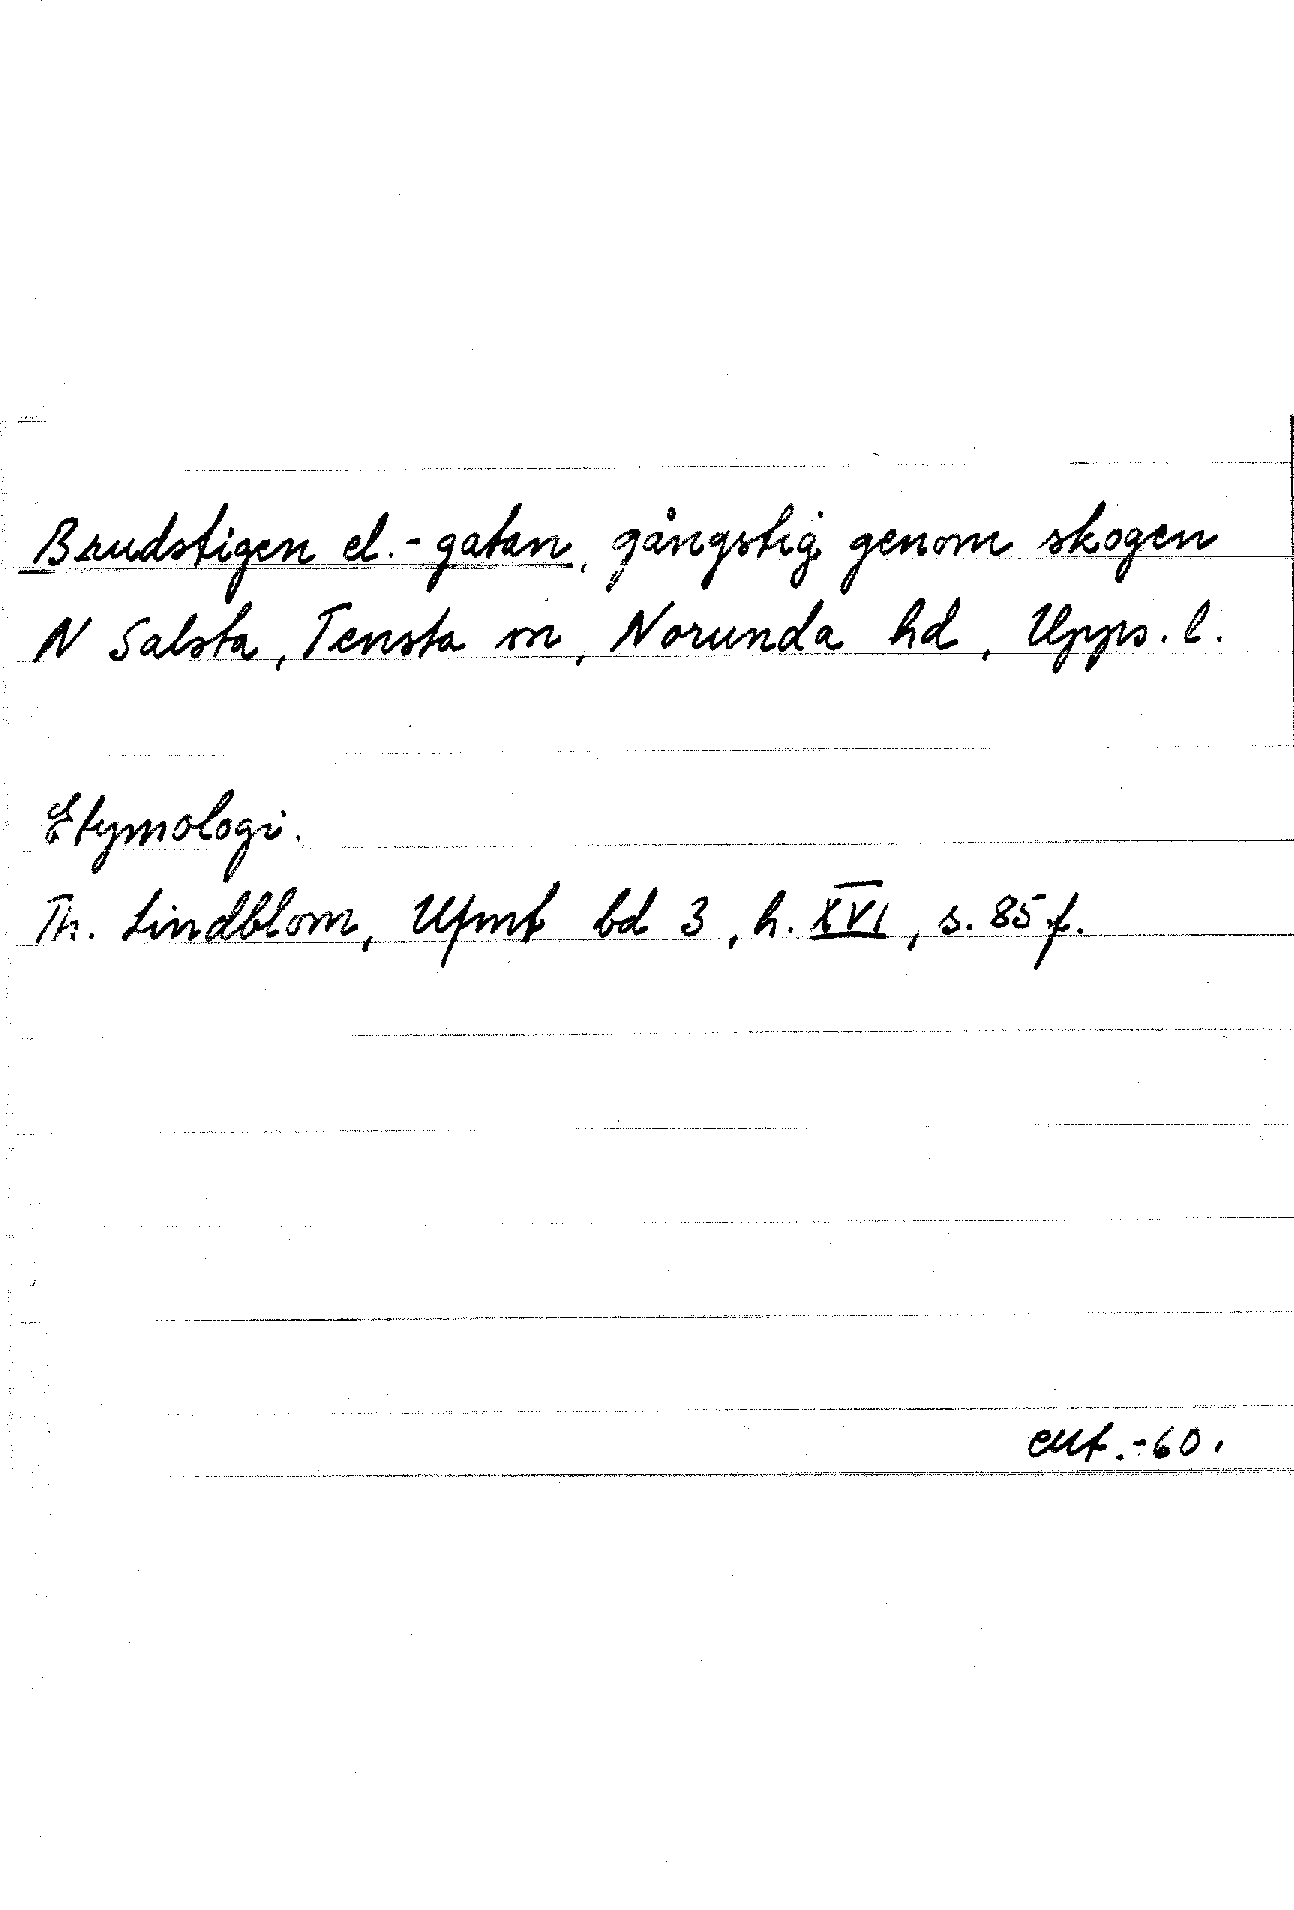 Brudstigen el. -gatan, gångstig genom skogen
N Salsta, Tensta sn, Norunda hd, Upps. l.
Etymologi.
Th. Lindblom, Ufmt bd 3, h. XVI, s. 85 f.
-60.